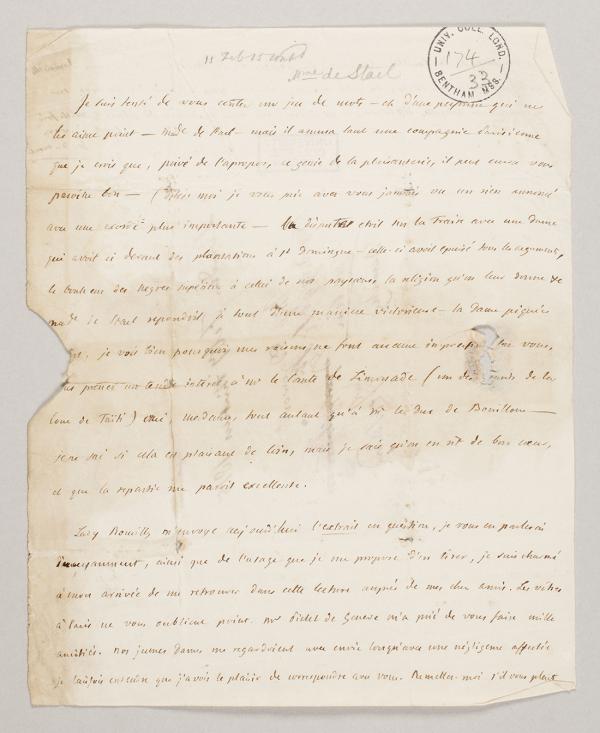 UNIV. COLL. LOND.
BENTHAM MSS.
174
33
11 Feb
Mme de Stael
Je suis tenté de vous conter un jeu de mots — et d'une personne qui ne
les aime point — Made de Stael — mais il amusa tant une compagnie Parisienne
que je crois que, privé de l'apropos, ce génie de la plaisanterie, il peut encor vous
paroître bon — (dites moi je vous prie avez vous jamais vu un rien annoncé
avec une plus importante — la dispute etoit sur la Traite avec une Dame
qui avoit ci devant des plantations à St Domingue — celle-ci avoit epuisé tous les argumens,
le bonheur des Negres supérieur à celui de nos paysans, la religion qu'on leur donne &c
Made de Stael repondoit à tout d'une manière victorieuse — la Dame piquée
je vois bien pourquoi mes raisons ne font aucune impression vous
interet à Mr le Comte de Limonade (un des grands de la
Cour de Haïti) oui, Madame, tout autant qu'à Mr le Duc de Bouillon —
je ne sai si cela est plaisant de loin, mais je sais qu'on en rit de bon coeur,
et que la repartie me paroit excellente.
Lady Romilly m'envoye aujourd'hui l'extrait en question, je vous en parlerai
, ainsi que de l'usage que je me propose d'en tirer, je suis charmé
à mon arrivée de me retrouver dans cette lecture auprès de mes chers amis. Les vôtres
à Paris ne vous oublient point. Mr Pictet de Geneve m'a prié de vous faire mille
amitiés. Nos jeunes dames me regardoient avec envie lorsqu'avec une négligence affectée
je laissois entendre que j'avois le plaisir de correspondre avec vous. Remettez-moi s'il vous plait